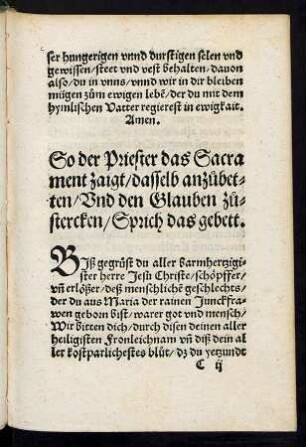 ser hungerigen vnnd durstigen selen vnd
gewissen/steet vnd vest behalten/dauon
also/du in vnns/vnnd wir in dir bleiben
mügen zům ewigen lebē/der du mit dem
hymlischen Vatter regierest in ewigkait.
Amen.
So der Priester das Sacra
ment zaigt/dasselb anzůbet-
ten/Vnd den Glauben zů-
stercken/Sprich das gebett.
BIß gegrüst du aller barmhertzigi-
ster herre Jesů Christe/schöpffer/
vñ erlößer/deß menschlichē geschlechts/
der du aus Maria der rainen Junckfra-
wen geborn bist/warer got vnd mensch/
Wir bitten dich/durch disen deinen aller
heiligisten Fronleichnam vñ diß dein al
ler kostparlichestes blůt/dz du yetzundt
C ij